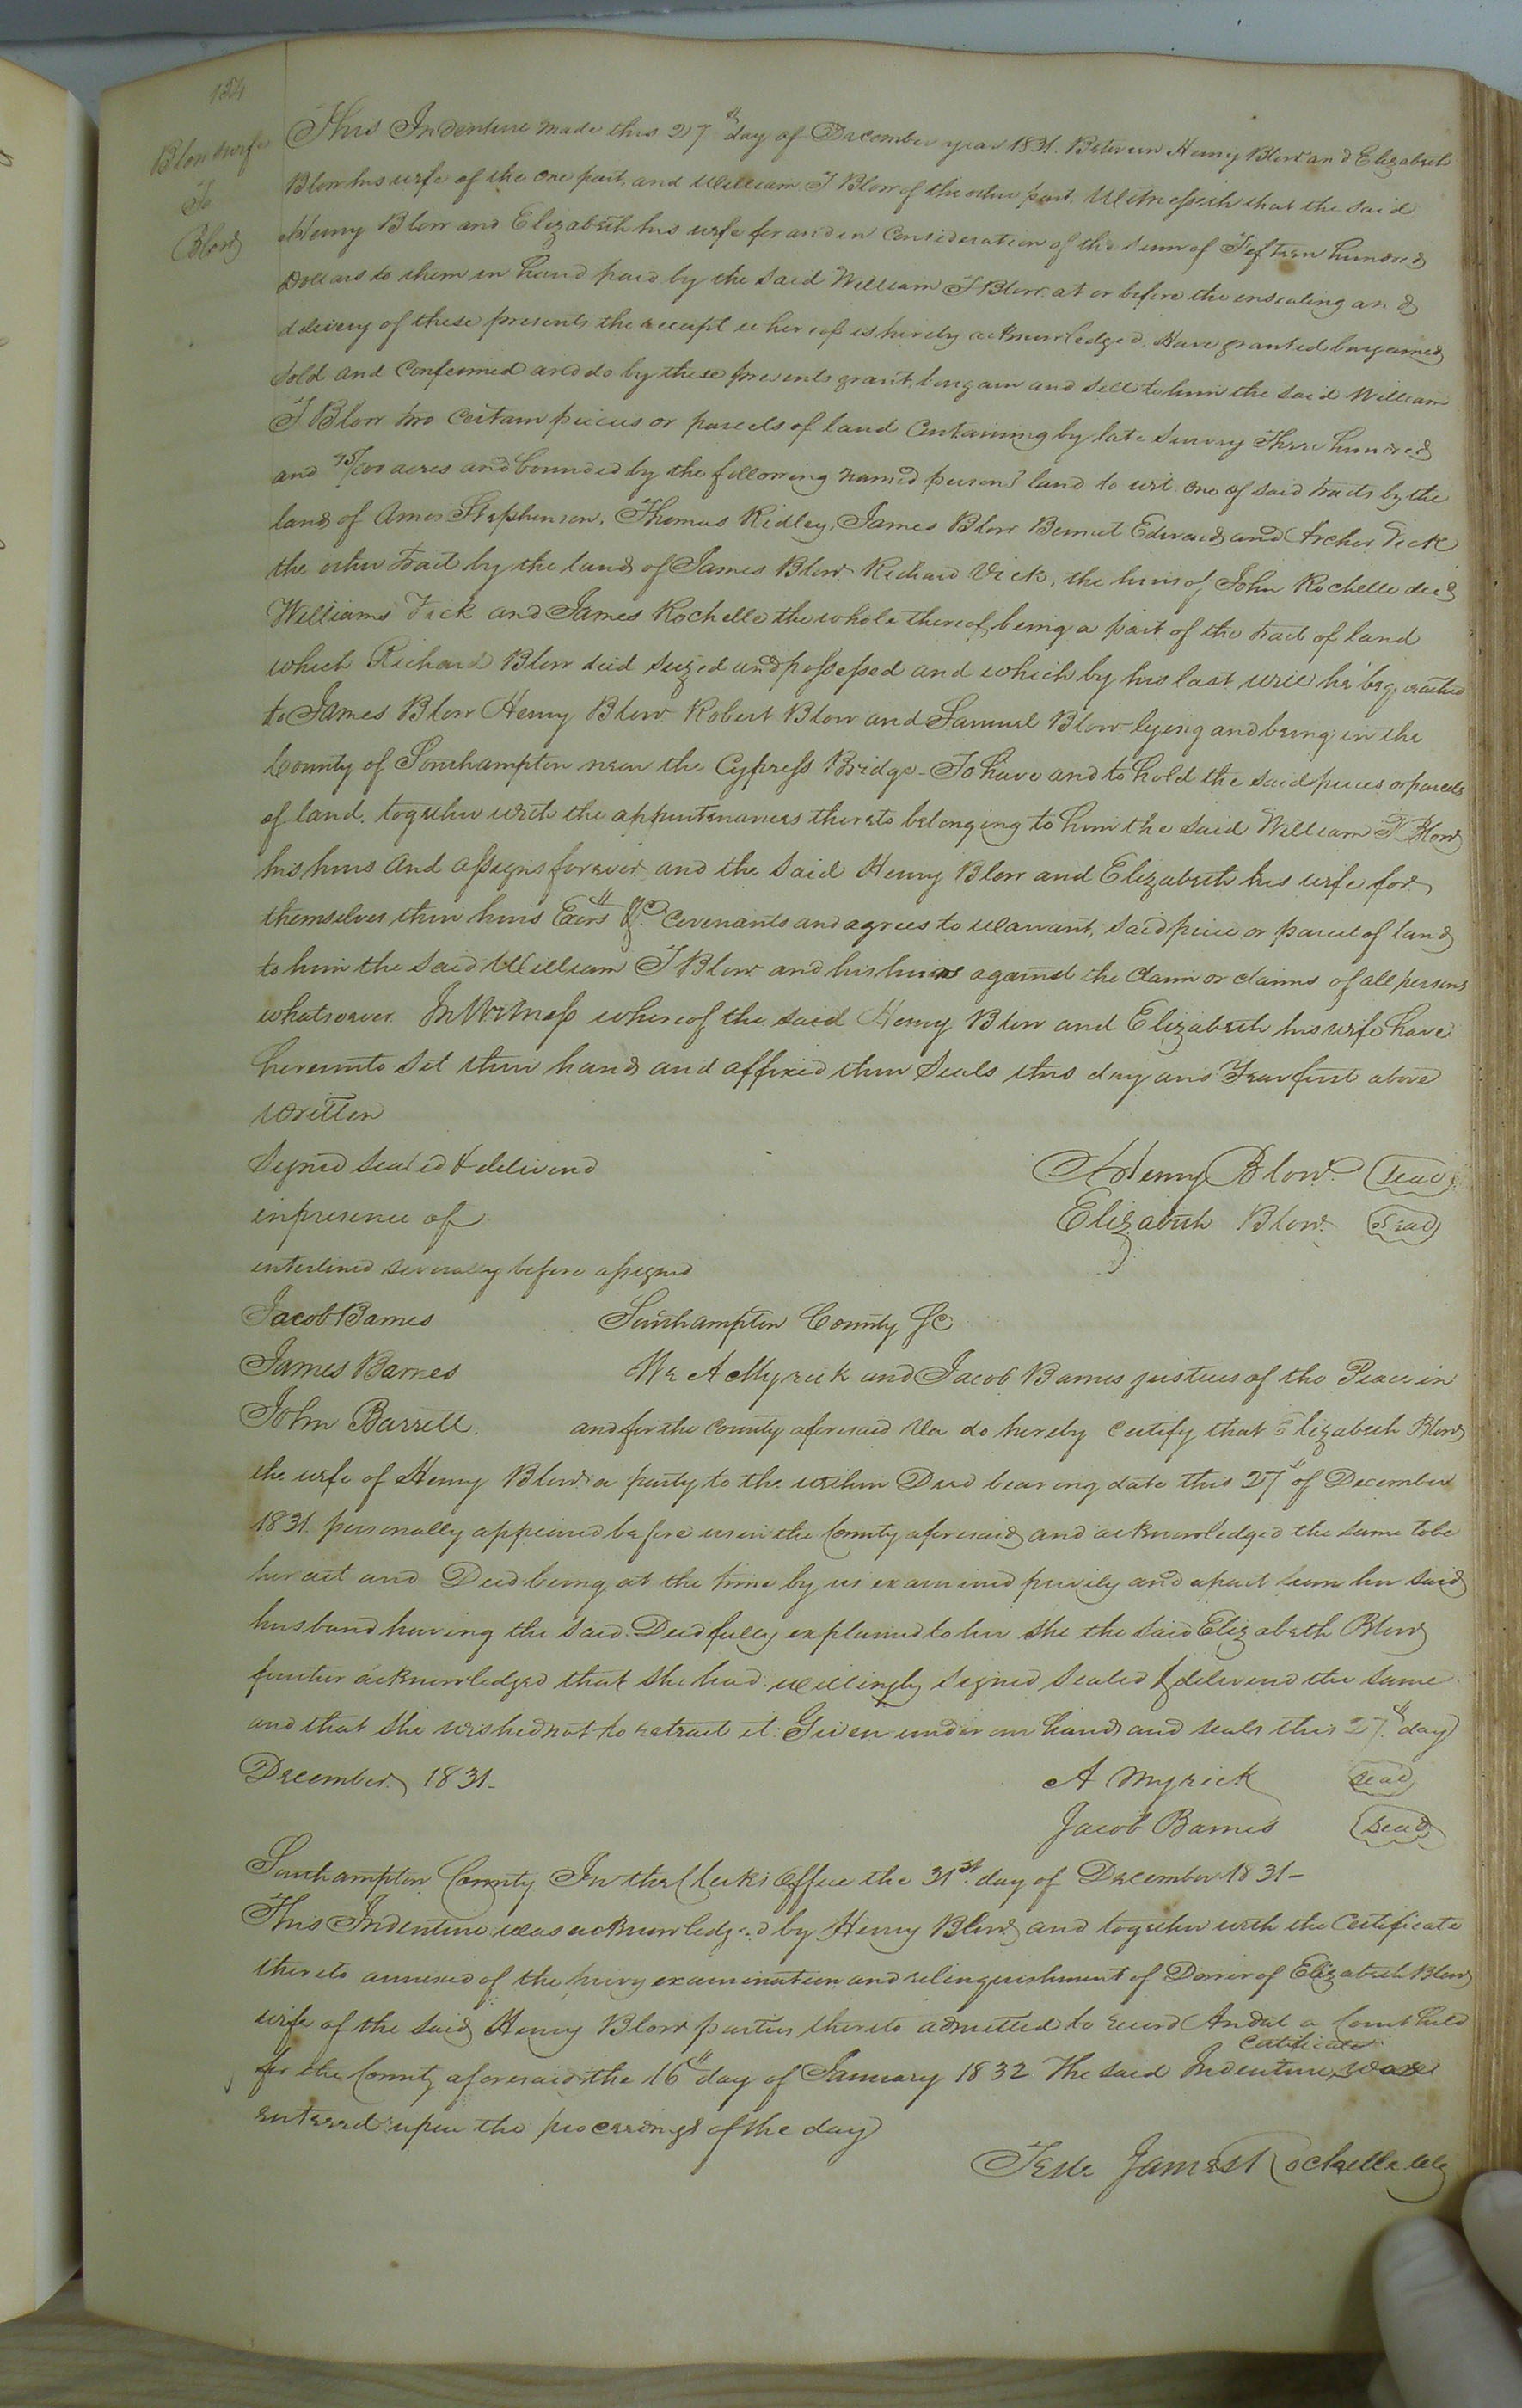 154
Blow & wife
To
Blow
This Indenture made this 27th day of December year 1831. Between Henry Blow and Elizabeth
Blow his wife of the one part, and William T Blow of the other part. Witnesseth that the said
Henry Blow and Elizabeth his wife for and in Consideration of the sum of Fifteen hundred
Dollars to them in hand paid by the said William T Blow at or before the ensealing and
delivery of these presents the receipt whereof is hereby acknowledged. Have granted bargained
Sold and Confirmed and do by these presents grant, bargain and sell to him the said William
T Blow two Certain pieces or parcels of land Containing by late Survey Three hundred
and 75/100 acres and bounded by the following named persons land to wit. one of said tracts by the
lands of Amos Stephenson, Thomas Ridley, James Blow Bennet Edwards and Archer Vick
the other tract by the lands of James Blow Richard Vick, the heirs of John Rochelle decd
Williams Vick and James Rochelle the whole thereof being a part of the tract of land
which Richard Blow died seized and possessed and which by his last will he bequeathed
to James Blow Henry Blow Robert Blow and Samuel Blow lying and being in the
County of Southampton near the Cypress Bridge - To have and to hold the said pieces or parcels
of land, together with the appurtenances thereto belonging to him the said William T Blow
his heirs and assigns forever and the said Henry Blow and Elizabeth his wife for
themselves their heirs Exors &c Covenants and agrees to Warrant, said piece or parcel of land
to him the said William T Blow and his heirs against the claim or claims of all persons
whatsoever. In Witness whereof the said Henry Blow and Elizabeth his wife have
hereunto set their hands and affixed their Seals this day and Year first above
written
Signed sealed & delivered
in presence of
interlined severally before assigned
Henry Blow. seal
Elizabeth Blow. Seal
Jacob Barnes
James Barnes
John Barrell.
Southampton County Sc
We A Myrick and Jacob Barnes justices of the Peace in
and for the County aforesaid Va do hereby certify that Elizabeth Blow
the wife of Henry Blow a party to the within Deed bearing date this 27th of December
1831. personally appeared before us in the County aforesaid and acknowledged the same to be
her act and Deed being at the time by us examined privily and apart from her said
husband having the said Deed fully explained to her she the said Elizabeth Blow
further acknowledged that she had willingly signed sealed & delivered the same
and that she wished not to retract it. Given under our hands and seals this 27th day
December 1831-
A Myrick seal
Jacob Barnes seal
Southampton County In the Clerks Office the 31st day of December 1831-
This Indenture was acknowledged by Henry Blow and together with the Certificate
thereto annexed of the privy examination and relinquishment of Dower of Elizabeth Blow
wife of the said Henry Blow parties thereto admitted to record And at a Court held
for the County aforesaid the 16th day of January 1832 The said Indenture certificate was
entered upon the proceedings of the day
Teste James Rochelle clk